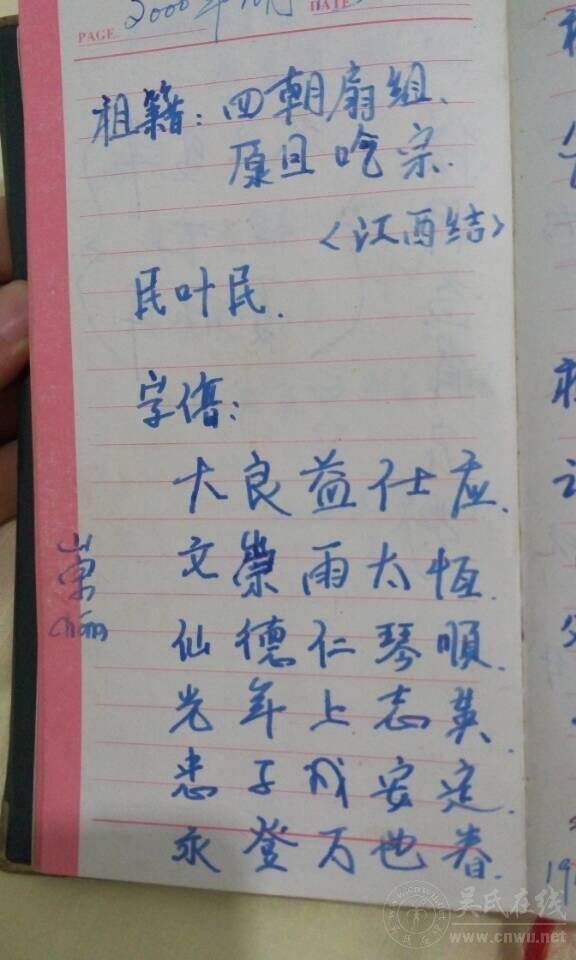 2000年
PAGE
DATE
祖籍：四朝扇组.
原旦吃宗.
<江西结>
民叶民.
字偣：
大良益仕应.
文崇雨太恆.
仙德仁琴順.
光年上志英.
忠子成安定.
永登万世春.
崇
吴氏在线
www.cnwu.net